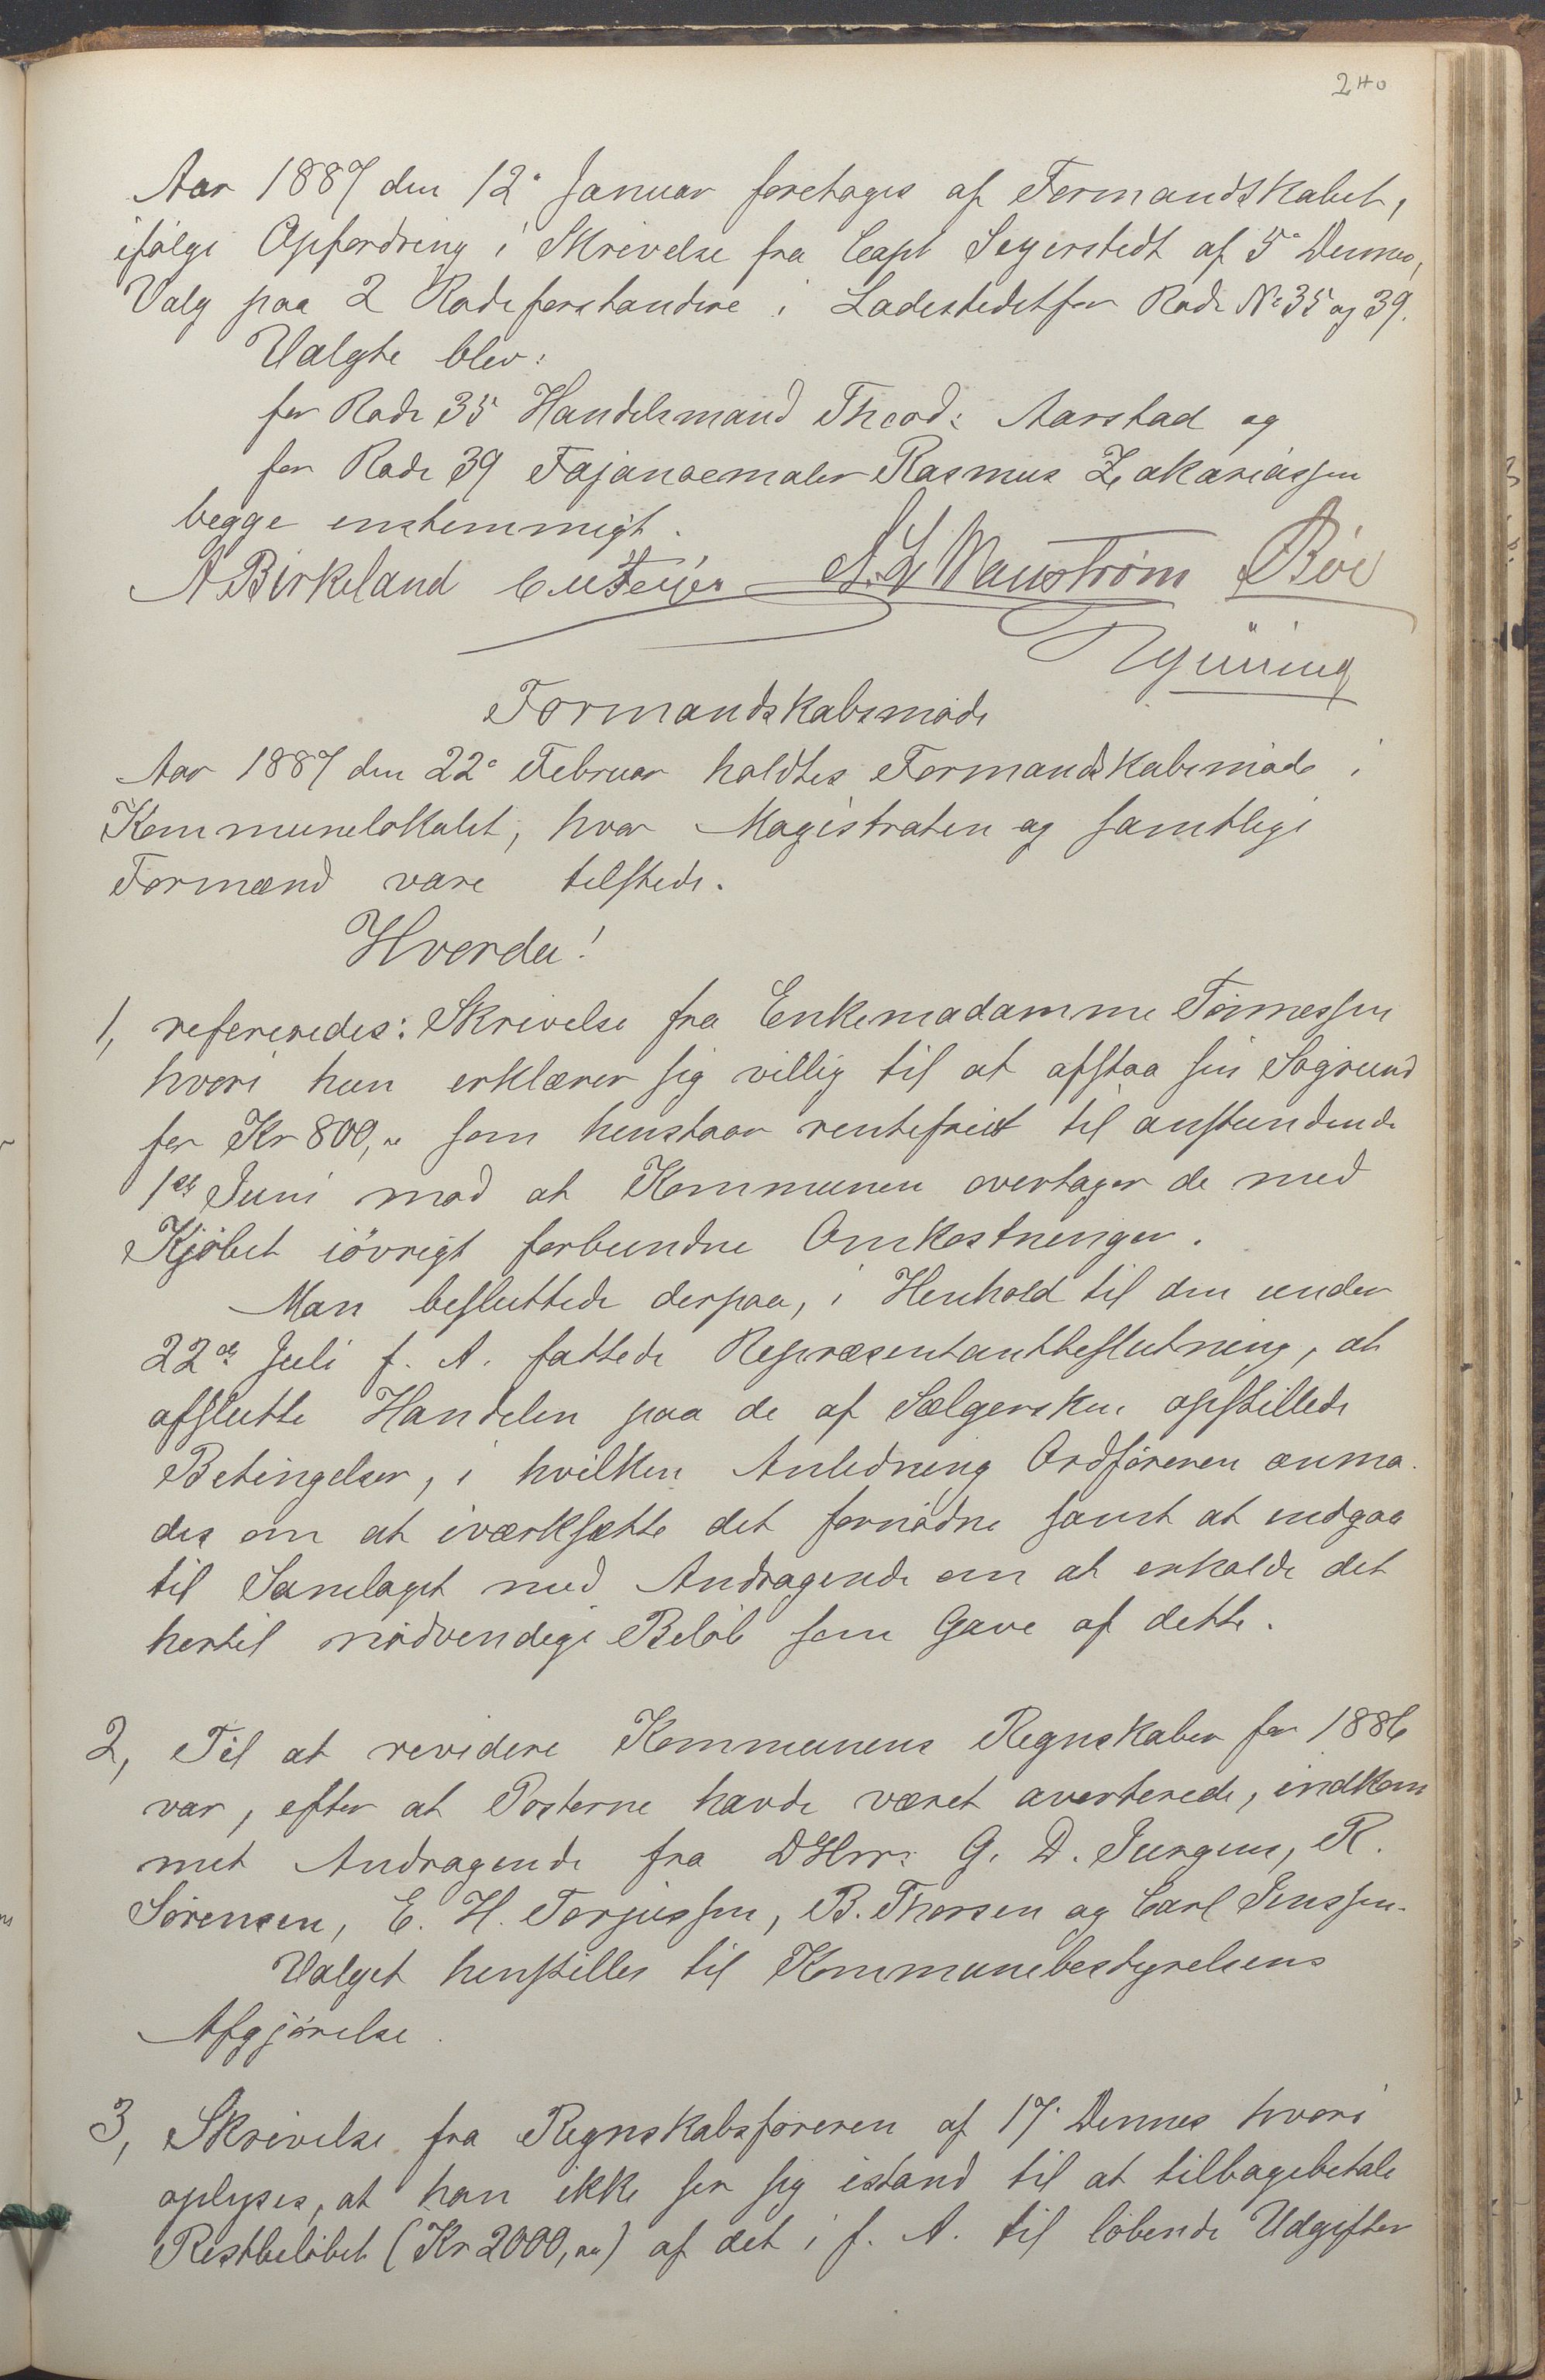 240
Aar 1887 den 12' Januar foretages af Formandskabet,
ifølge Opfordring i Skrivelse fra Capt Segerstedt af 5' Dennes,
Valg paa 2 Rodeforstandere i Ladestedet for Rode No 35 og 39.
Valgte blev:
for Rode 35 Handelsmand Theod: Aarstad og
for Rode 39 Fajancemaler Rasmus Zakariassen
begge enstemmigt.
A Birkeland C M Feyer Bøe
Formandskabsmøde
Aar 1887 den 22' Februar holdtes Formandskabsmøde i
Kommunelokalet, hvor Magistraten og samtlige
Formænd vare tilstede.
Hvorda!
1, refereredes: Skrivelse fra Enkemadamme Tønnessen
hvori hun erklærer sig villig til at afstaa sin Søgrund
for Kr 800,- som henstaar rentefrit til anstundende
1ste Juni mod at Kommunen overtager de med
Kjøbet iøvrigt forbundne Omkostninger.
Man besluttede derpaa, i Henhold til den under
22de Juli f. A. fattede Repræsentantbeslutning, at
afslutte Handelen paa de af Sælgersken opstillede
Betingelser, i hvilken Anledning Ordføreren anmo-
des om at iværksætte det fornødne samt at indgaa
til Samlaget med Andragende om at erholde det
hertil nødvendige Beløb som Gave af dette.
2, Til at revidere Kommunens Regnskaber for 1886
var, efter at Posterne havde været averterede, indkom
met Andragende fra DHrr: G. D. Jurgens, R.
Sørensen, E. H. Torjussen, B. Thorsen og Carl Jenssen.
Valget henstilles til Kommunebestyrelsens
Afgjørelse.
3, Skrivelse fra Regnskabsføreren af 17' Dennes hvori
oplyses, at han ikke ser sig istand til at tilbagebetale
Restbeløbet (Kr 2000,-) af det i f. A. til løbende Udgifter